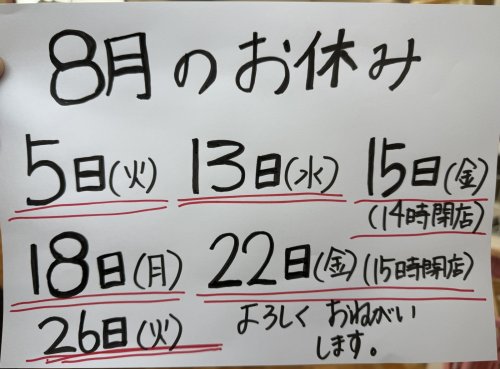 8月のお休み
5日(火) 13日(水) 15日(金)
(14時閉店)
18日(月) 22日(金)(15時閉店)
26日(火) よろしく おねがい
します。